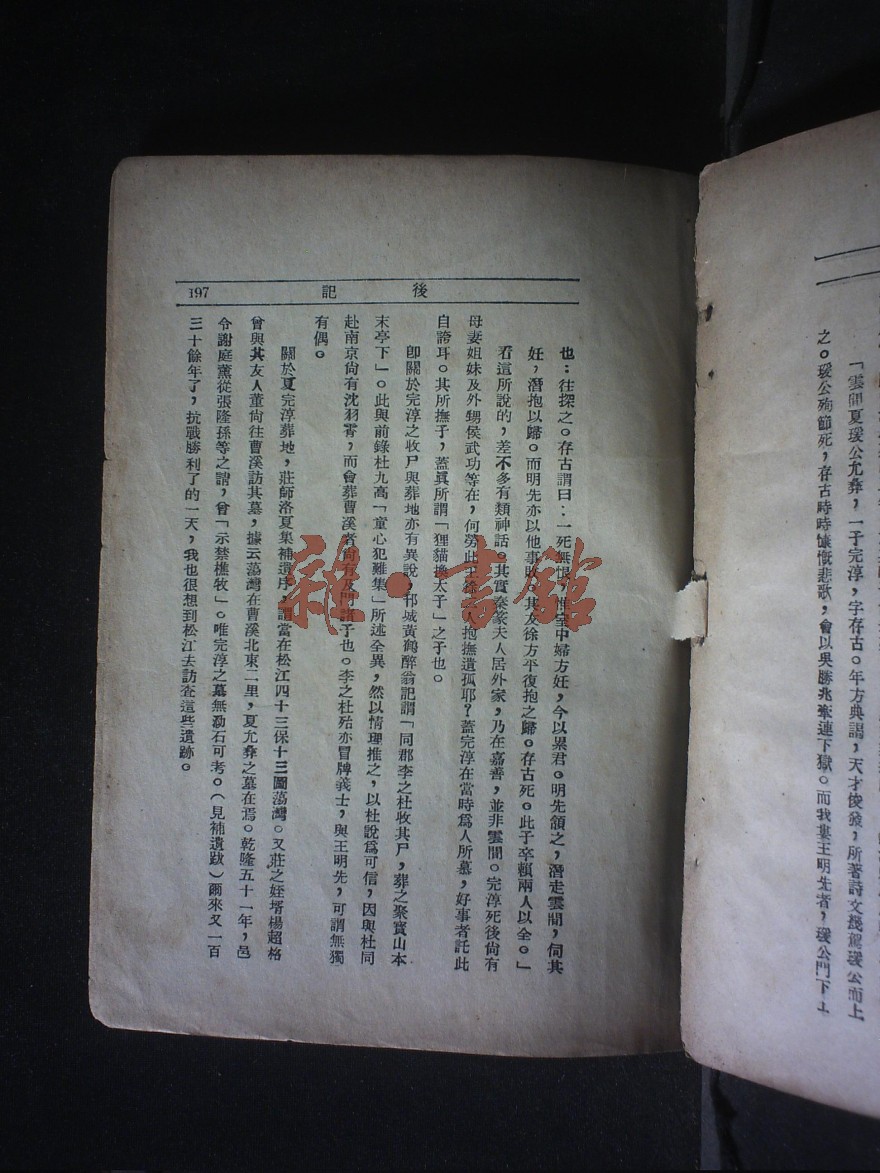 「雲間夏瑗公允彝，一子完淳，字存古。年方典謁，天才俊發，所著詩文幾駕瑗公而上
之。瑗公殉節死，存古時時慷慨悲歌，會以吳勝兆牽連下獄。而我婁王明先者，瑗公門下士
後記
197
也：往探之。存古謂曰：一死無恨，惟室中婦方妊，今以累君。明先頷之，潛走雲間，伺其
妊，潛抱以歸。而明先亦以他事收，其友徐方平復抱之歸。存古死。此子卒賴兩人以全。」
看這所說的，差不多有類神話。其實秦篆夫人居外家，乃在嘉善，並非雲間。完淳死後尙有
母妻姐妹及外甥侯武功等在，何勞此王徐二人抱撫遺孤耶？蓋完淳在當時爲人所慕，好事者託此
自誇耳。其所撫子，蓋眞所謂「狸貓換太子」之子也。
卽關於完淳之收尸與葬地亦有異說，邗城黃鶴醉翁記謂「同郡李之杜收其尸，葬之聚寳山本
末亭下」。此與前錄杜九高「童心犯難集」所述全異，然以情理推之，以杜說爲可信，因與杜同
赴南京尙有沈羽霄，而會葬曹溪者尙有及門諸子也。李之杜殆亦冒牌義士，與王明先，可謂無獨
有偶。
關於夏完淳葬地，莊師洛夏集補遺序，謂當在松江四十三保十三圖蕩灣。又莊之姪壻楊超格
曾與其友人董尙往曹溪訪其墓，據云蕩灣在曹溪北東二里，夏允彝之墓在焉。乾隆五十一年，邑
令謝庭薰從張隆孫等之請，曾「示禁樵牧」。唯完淳之墓無勒石可考。（見補遺跋）爾來又一百
三十餘年了，抗戰勝利了的一天，我也很想到松江去訪查這些遺跡。
雜·書館